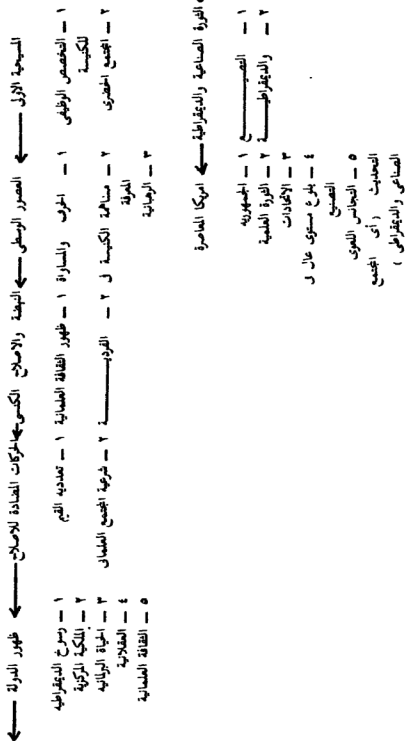 المسيحية الاولى ← العصور الوسطى ← النهضة والاصلاح الكنسى ← الحركات المضادة للاصلاح ← ظهور الدولة ←
١ ـ التخصص الوظيفى
للكنيسة
٢ ـ المجتمع الحضرى
١ ـ الحرف والمساواة
٢ ـ مساهمة الكنيسة فى
المعرفة
٣ ـ الرهبانية
١ ـ ظهور الثقافة العلمانية
٢ ـ الفرديـــــة
١ ـ تعدديه القيم
٢ ـ شرعية المجتمع العلمانى
١ ـ رسوخ الديمقراطيه
٢ ـ الملكية المركزية
٣ ـ الحياة البرلمانيه
٤ ـ العقلانية
٥ ـ الثقافة العلمانية
الثورة الصناعية والديمقراطية ← امريكا المعاصرة
١ ـ التصنيـــــع
٢ ـ والديمقراطيـــــة
١ ـ الجمهوريه
٢ ـ الثورة العلمية
٣ ـ الاتحادات
٤ ـ بلوغ مستوى عال فى
التصنيع
٥ ـ التجانس اللغوى
التحديث ( أى المجتمع
الصناعى والديمقراطى )